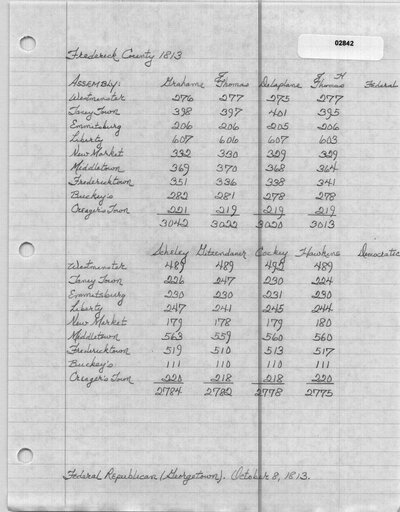 02842
Frederick County 1813
Assembly: Grahame J Thomas Delaplane J H Thomas Federal
Westminster 276 277 275 277
Taney Town 398 397 401 395
Emmitsburg 206 206 205 206
Liberty 607 606 607 603
New Market 332 330 329 329
Middletown 369 370 368 364
Fredericktown 351 336 338 341
Buckey's 282 281 278 278
Creager's Town 221 219 219 219
3042 3022 3020 3013
Schley Bitzendaner Cockey Hawkins Democratic
Westminster 489 489 492 489
Taney Town 226 247 230 224
Emmitsburg 230 230 231 230
Liberty 247 241 245 244
New Market 179 178 179 180
Middletown 563 559 560 560
Fredericktown 519 510 513 517
Buckey's 111 110 110 111
Creager's Town 220 218 218 220
2784 2782 2778 2775
Federal Republican (Georgetown). October 8, 1813.